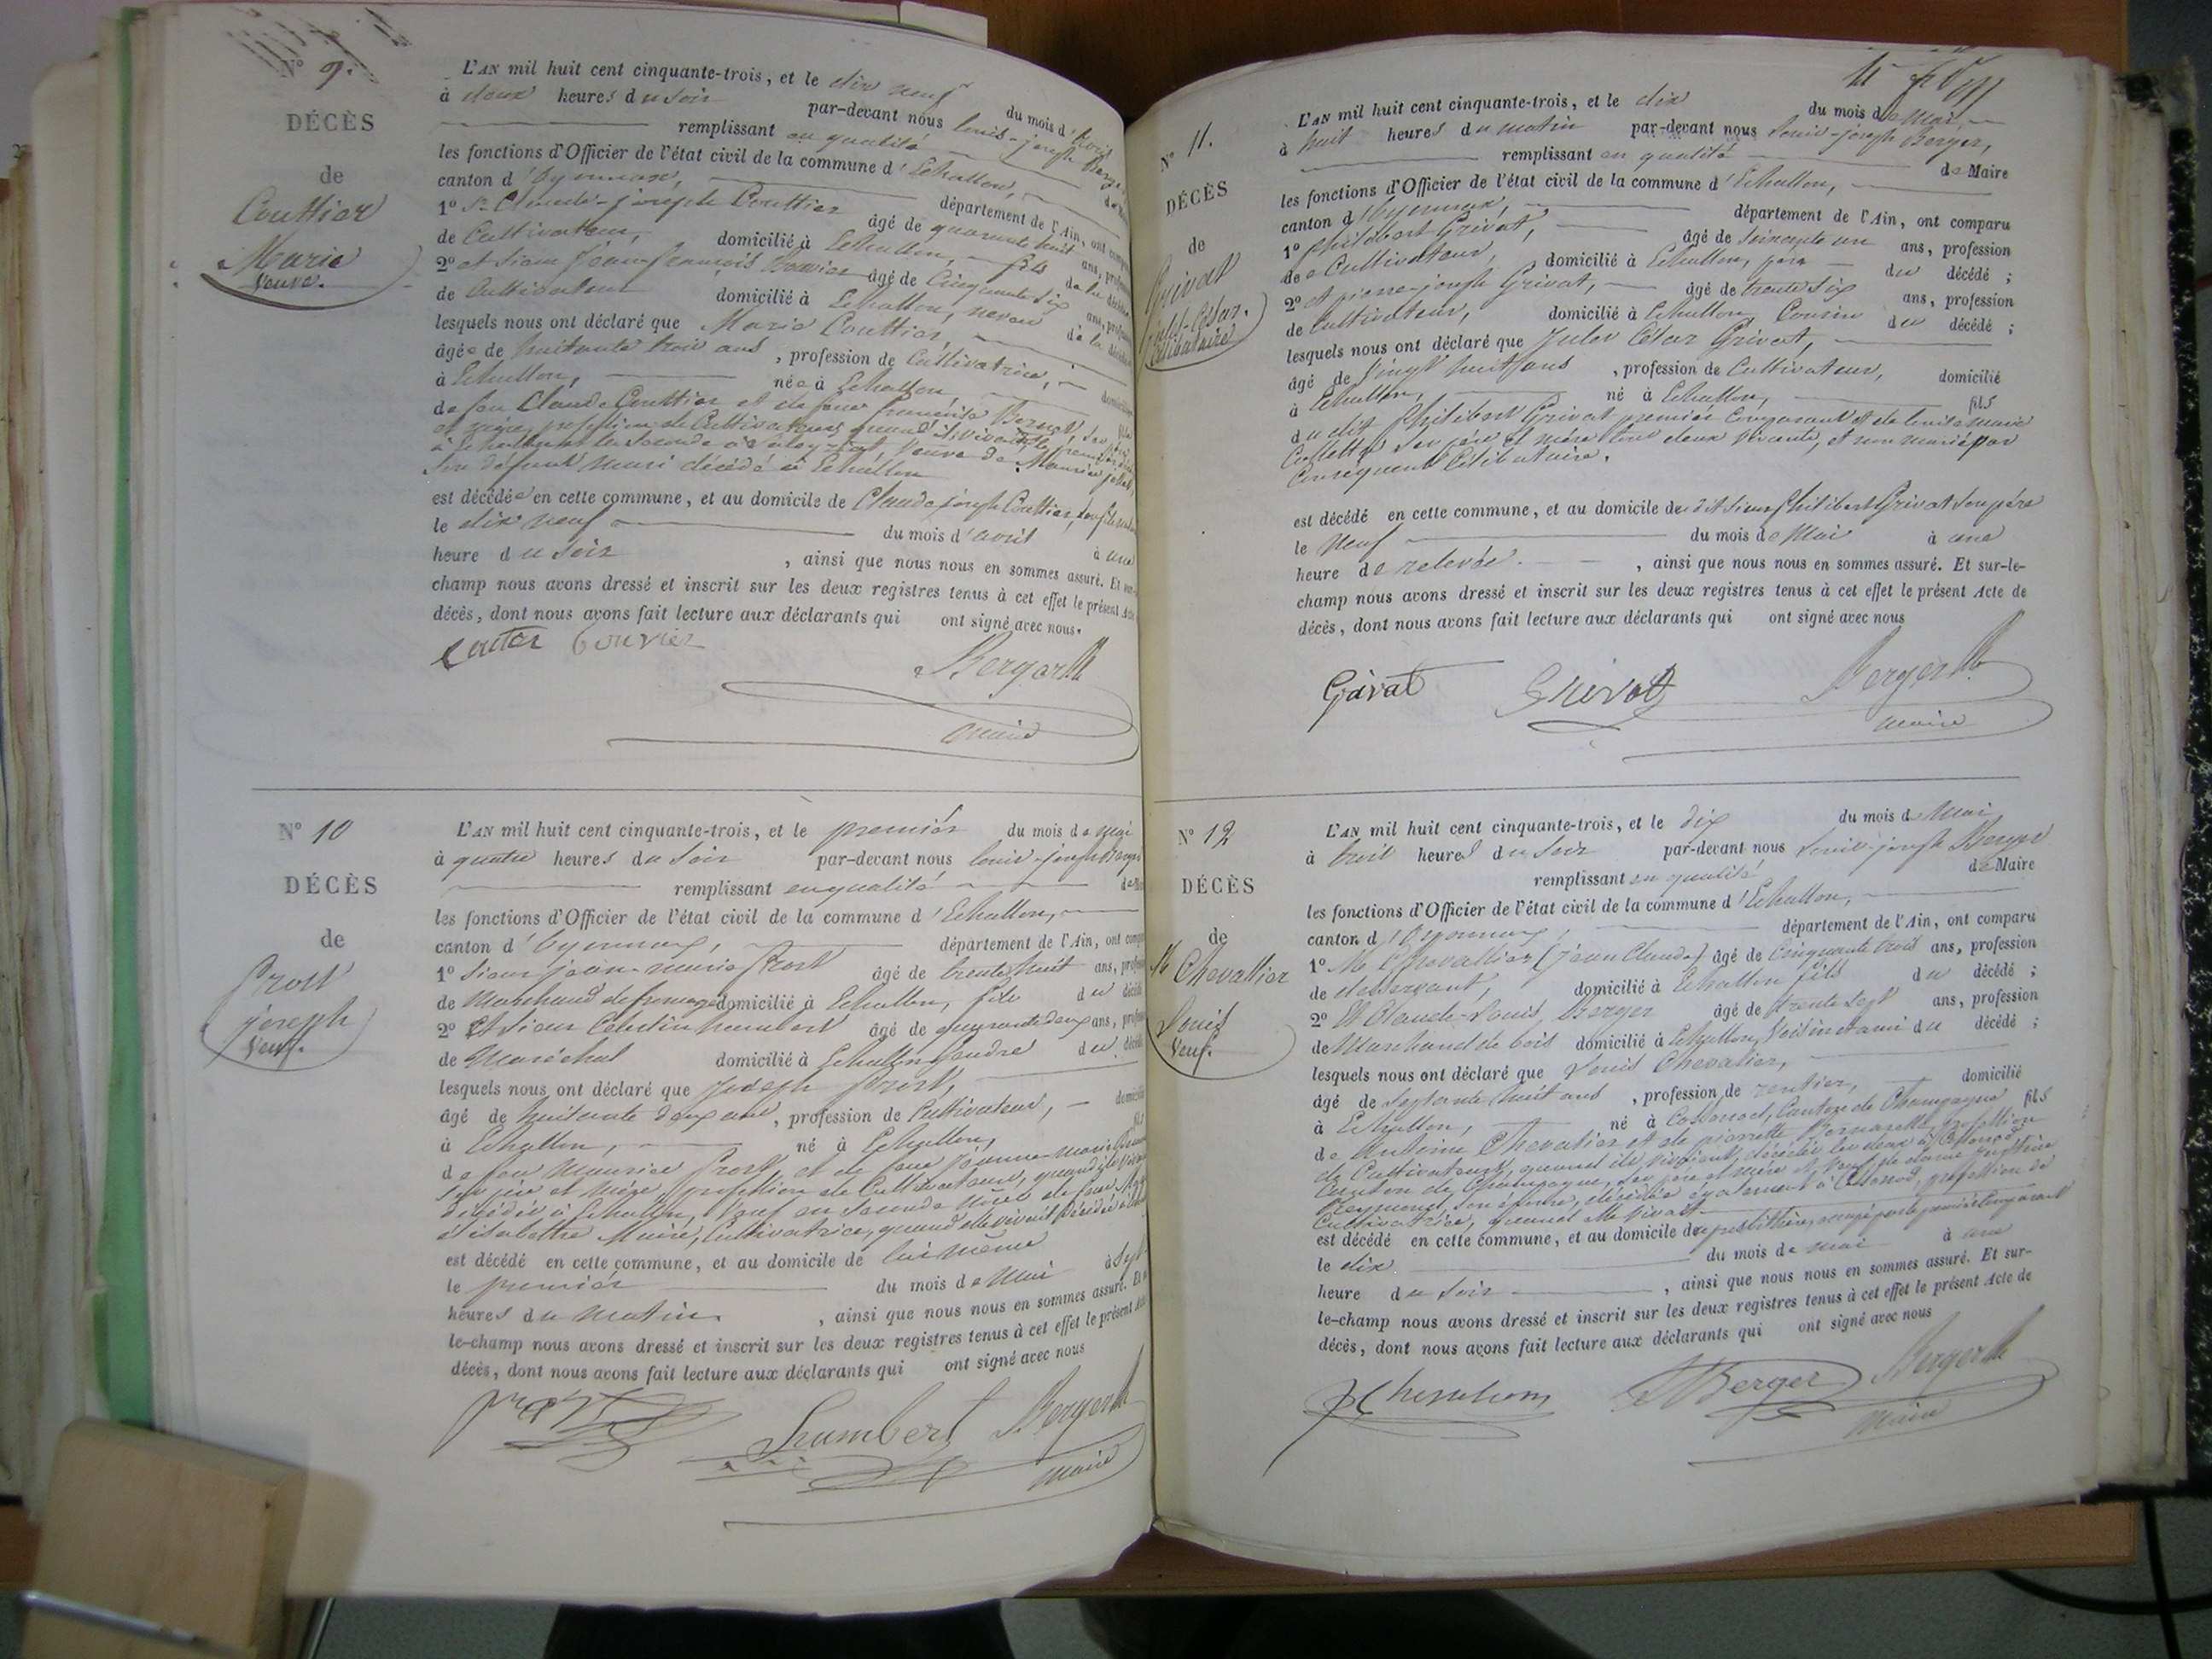 N° 9.
DÉCÈS
de
Couttier
Marie
Veuve.
L'AN mil huit cent cinquante-trois, et le dix neuf du mois d'avril
à deux heures du soir par-devant nous louis-joseph Berger
remplissant en qualité de
les fonctions d'Officier de l'état civil de la commune d'Echallon,
canton d'Oyonnax, département de l'Ain, ont
1° Sr Claude-joseph Couttier âgé de quarante huit ans,
de Cultivateur, domicilié à Echallon, fils de la
2° et Sieur Jean françois Bouvier âgé de Cinquante six ans,
de Cultivateur domicilié à Echallon, neveu de la
lesquels nous ont déclaré que Marie Couttier,
âgée de huitante trois ans, profession de Cultivatrice,
à Echallon, née à Echallon
de feu Claude Couttier et de feue françoise
et mère, profession de Cultivateurs quand ils vivaient,
à Echallon et la seconde à Veuve de Maurice
son défunt mari décédé à Echallon
est décédée en cette commune, et au domicile de Claude joseph Couttier, son fils
le dix neuf du mois d'avril à une
heure du soir, ainsi que nous nous en sommes assuré. Et
champ nous avons dressé et inscrit sur les deux registres tenus à cet effet le présent
décès, dont nous avons fait lecture aux déclarants qui ont signé avec nous.
Bouvier
Berger
maire
N° 10
DÉCÈS
de
Prost
joseph
Veuf.
L'AN mil huit cent cinquante-trois, et le premier du mois de mai
à quatre heures du soir par-devant nous louis-joseph Berger
remplissant en qualité de
les fonctions d'Officier de l'état civil de la commune d'Echallon,
canton d'Oyonnax, département de l'Ain, ont
1° Sieur jean-marie Prost âgé de trente huit ans,
de Marchand de fromages domicilié à Echallon, fils du
2° Et Sieur Célestin humbert âgé de quarante deux ans,
de Maréchal domicilié à Echallon Gendre du
lesquels nous ont déclaré que Joseph Prost,
âgé de huitante deux ans, profession de Cultivateur,
à Echallon, né à Echallon,
de feu Maurice Prost, et de feue jeanne-marie
son père et mère, profession de Cultivateurs, quand ils
décédés à Echallon, Veuf en seconde noces de feue
élisabeth Maire, Cultivatrice, quand elle vivait Décédée à
est décédé en cette commune, et au domicile de lui même
le premier du mois de Mai à sept
heures du matin, ainsi que nous nous en sommes assuré.
le-champ nous avons dressé et inscrit sur les deux registres tenus à cet effet le présent
décès, dont nous avons fait lecture aux déclarants qui ont signé avec nous
prost humbert Berger
maire
N° 11.
DÉCÈS
de
Grivat
jules-César.
Célibataire
L'AN mil huit cent cinquante-trois, et le dix du mois de Mai
à huit heures du matin par-devant nous Louis-joseph Berger,
remplissant en qualité de Maire
les fonctions d'Officier de l'état civil de la commune d'Echallon,
canton d'Oyonnax, département de l'Ain, ont comparu
1° philibert Grivat, âgé de soixante un ans, profession
de Cultivateur, domicilié à Echallon, père du décédé;
2° et pierre-joseph Grivat, âgé de trente six ans, profession
de Cultivateur, domicilié à Echallon, Cousin du décédé;
lesquels nous ont déclaré que Jules César Grivat,
âgé de Vingt huit ans, profession de Cultivateur, domicilié
à Echallon, né à Echallon, fils
du dit Philibert Grivat premier Comparant et de marie
Collette ses père et mère tous deux Vivants, et non marié par
Conséquent Célibataire.
est décédé en cette commune, et au domicile du dit Sieur Philibert Grivat son père
le Neuf du mois de Mai à une
heure de relevée, ainsi que nous nous en sommes assuré. Et sur-le-
champ nous avons dressé et inscrit sur les deux registres tenus à cet effet le présent Acte de
décès, dont nous avons fait lecture aux déclarants qui ont signé avec nous
Grivat Grivat Berger
maire
N° 12
DÉCÈS
de
Mr Chevallier
Louis
Veuf.
L'AN mil huit cent cinquante-trois, et le dix du mois de Mai
à trois heures du soir par-devant nous Louis-joseph Berger
remplissant en qualité de Maire
les fonctions d'Officier de l'état civil de la commune d'Echallon,
canton d'Oyonnax, département de l'Ain, ont comparu
1° Mr Chevallier (jean Claude) âgé de Cinquante trois ans, profession
de desservant, domicilié à Echallon fils du décédé;
2° Et Claude-Louis Berger âgé de trente sept ans, profession
de Marchand de bois domicilié à Echallon, Voisin et ami du décédé;
lesquels nous ont déclaré que Louis Chevalier,
âgé de septante huit ans, profession de rentier, domicilié
à Echallon, né à Canton de Champagne fils
de Antoine Chevalier et de pierrette profession
de Cultivateurs, quand ils vivaient, décédés les deux à
Canton de Champagne, ses père et mère et Veuf de dame
son épouse, décédée également à profession de
Cultivatrice, quand elle vivait
est décédé en cette commune, et au domicile du presbithère, occupé par le premier Comparant
le dix du mois de mai à une
heure du soir, ainsi que nous nous en sommes assuré. Et sur-
le-champ nous avons dressé et inscrit sur les deux registres tenus à cet effet le présent Acte de
décès, dont nous avons fait lecture aux déclarants qui ont signé avec nous
Berger Berger
maire